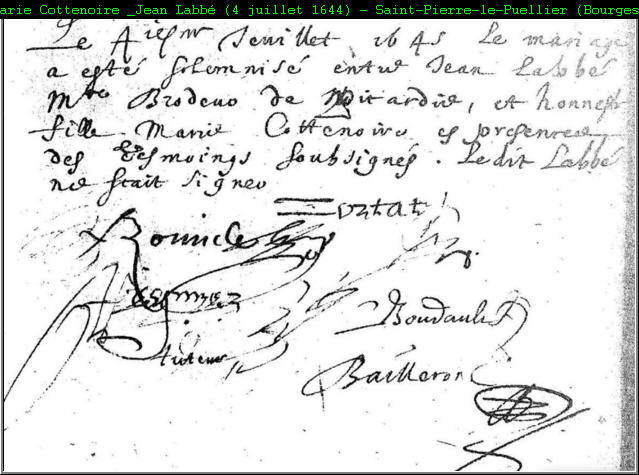 arie Cottenoire _Jean Labbé (4 juillet 1644) – Saint-Pierre-le-Puellier (Bourges
Le 4iesme Jeuillet 1645 Le mariage
a esté solemnisé entre Jean Labbé
Mtre Brodeur de et honneste
fille Marie Cottenoire es presence
des Tesmoings soubsignés . Ledit Labbé
ne scait signer
Boudault
Bailleron